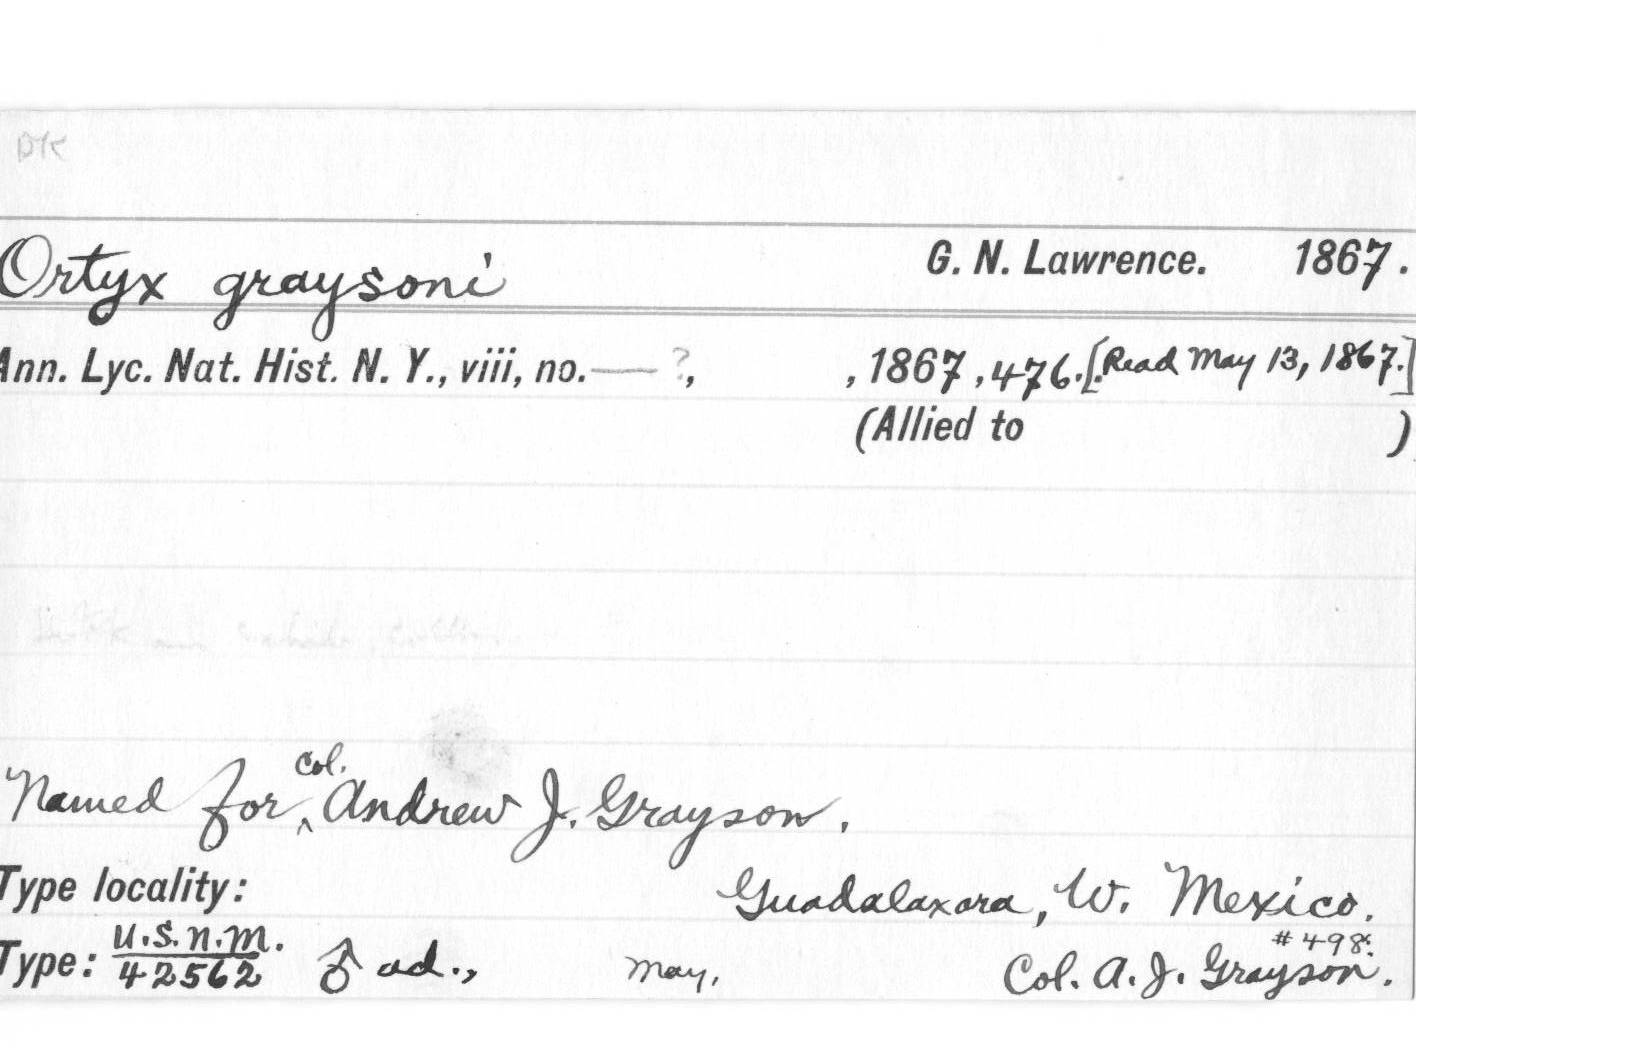 Ortyx graysoni G. N. Lawrence. 1867.
Ann. Lyc. Nat. Hist. N. Y., viii, no. — ?, , 1867, 476. [Read May 13, 1867.]
(Allied to )
Named for ^ Col. Andrew J. Grayson.
Type locality: Guadalaxara, W. Mexico.
#498.
Type: U.S.N.M. 42562 ♂ ad., May. Col. A. J. Grayson.